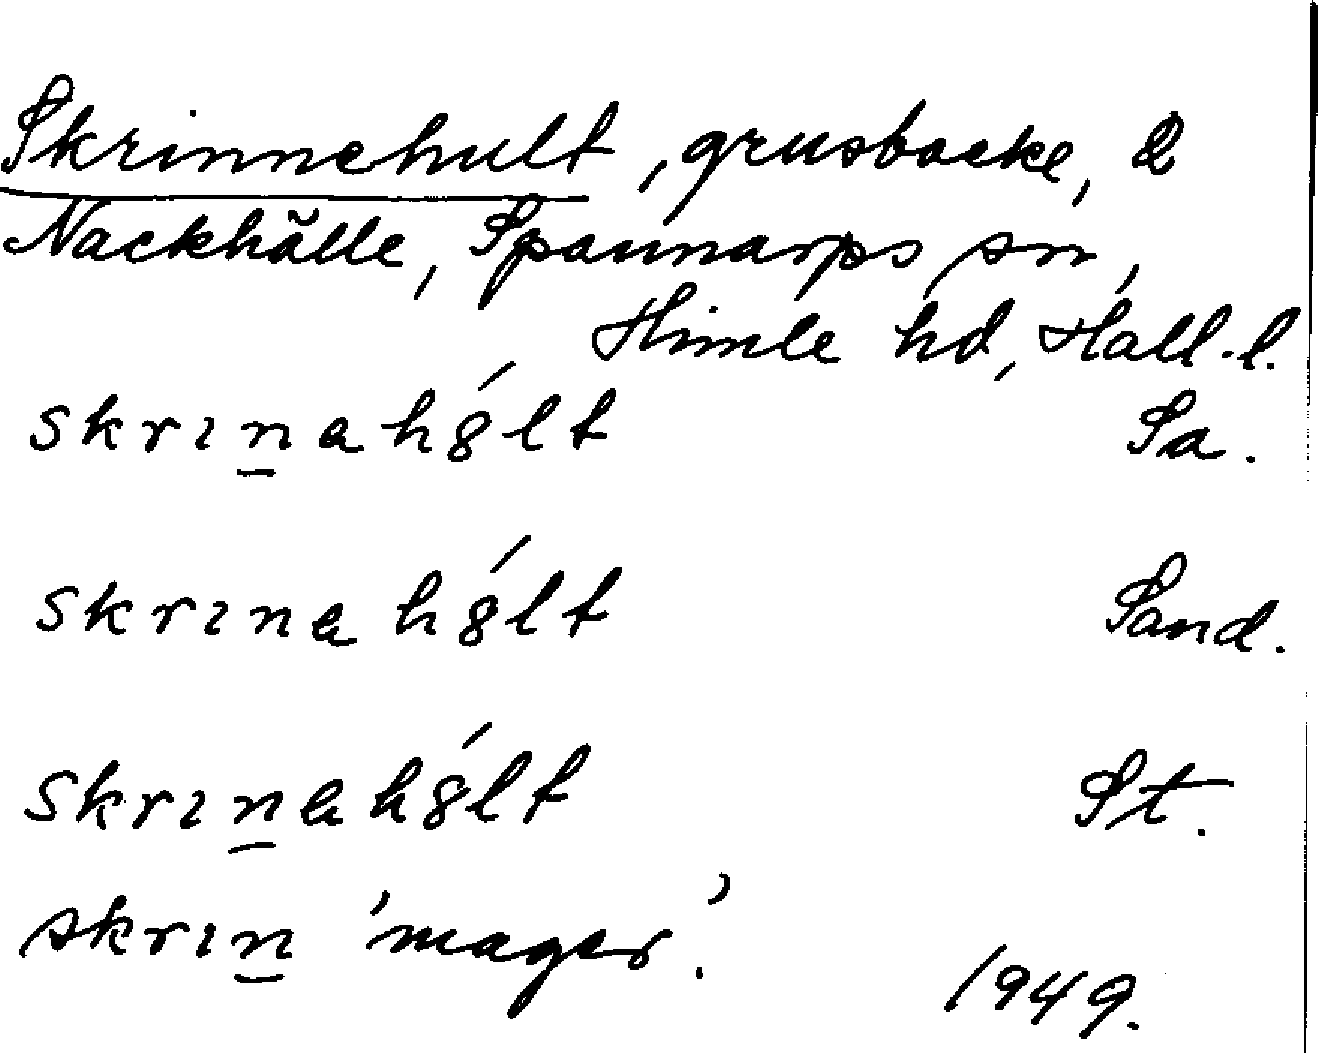 Skrinnehult, grusbacke, å
Nackhälle, Spannarps sn,
Himle hd, Hall. l.
skrın̲ahǿlt Sa.
skrınahǿlt Sand.
skrın̲ahǿlt St.
skrın̲ 'mager'.
1949.